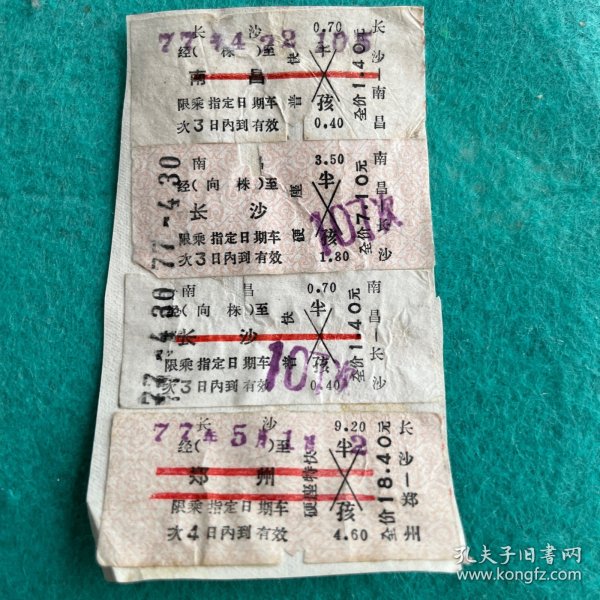 长 沙 0.70
77年4月22 105
经( 株 )至 快 半
南 昌
限乘指定日期车 普 孩
次3日内到有效 0.40
全价1.40元
长沙—南昌
77-4-30
南 昌 3.50
经( 向 株 )至 座 半
长 沙
限乘指定日期车 硬 孩
次3日内到有效 1.80
107次
全价7.10元
南昌—长沙
77-4-30
南 昌 0.70
经( 向 株 )至 快 半
长 沙
限乘指定日期车 普 孩
次3日内到有效 0.40
107次
全价1.40元
南昌—长沙
长 沙 9.20
77年5月1 2
经( )至 半
郑 州
硬座特快
限乘指定日期车 孩
次4日内到有效 4.60
全价18.40元
长沙—郑州
孔夫子旧书网
www.kongfz.com